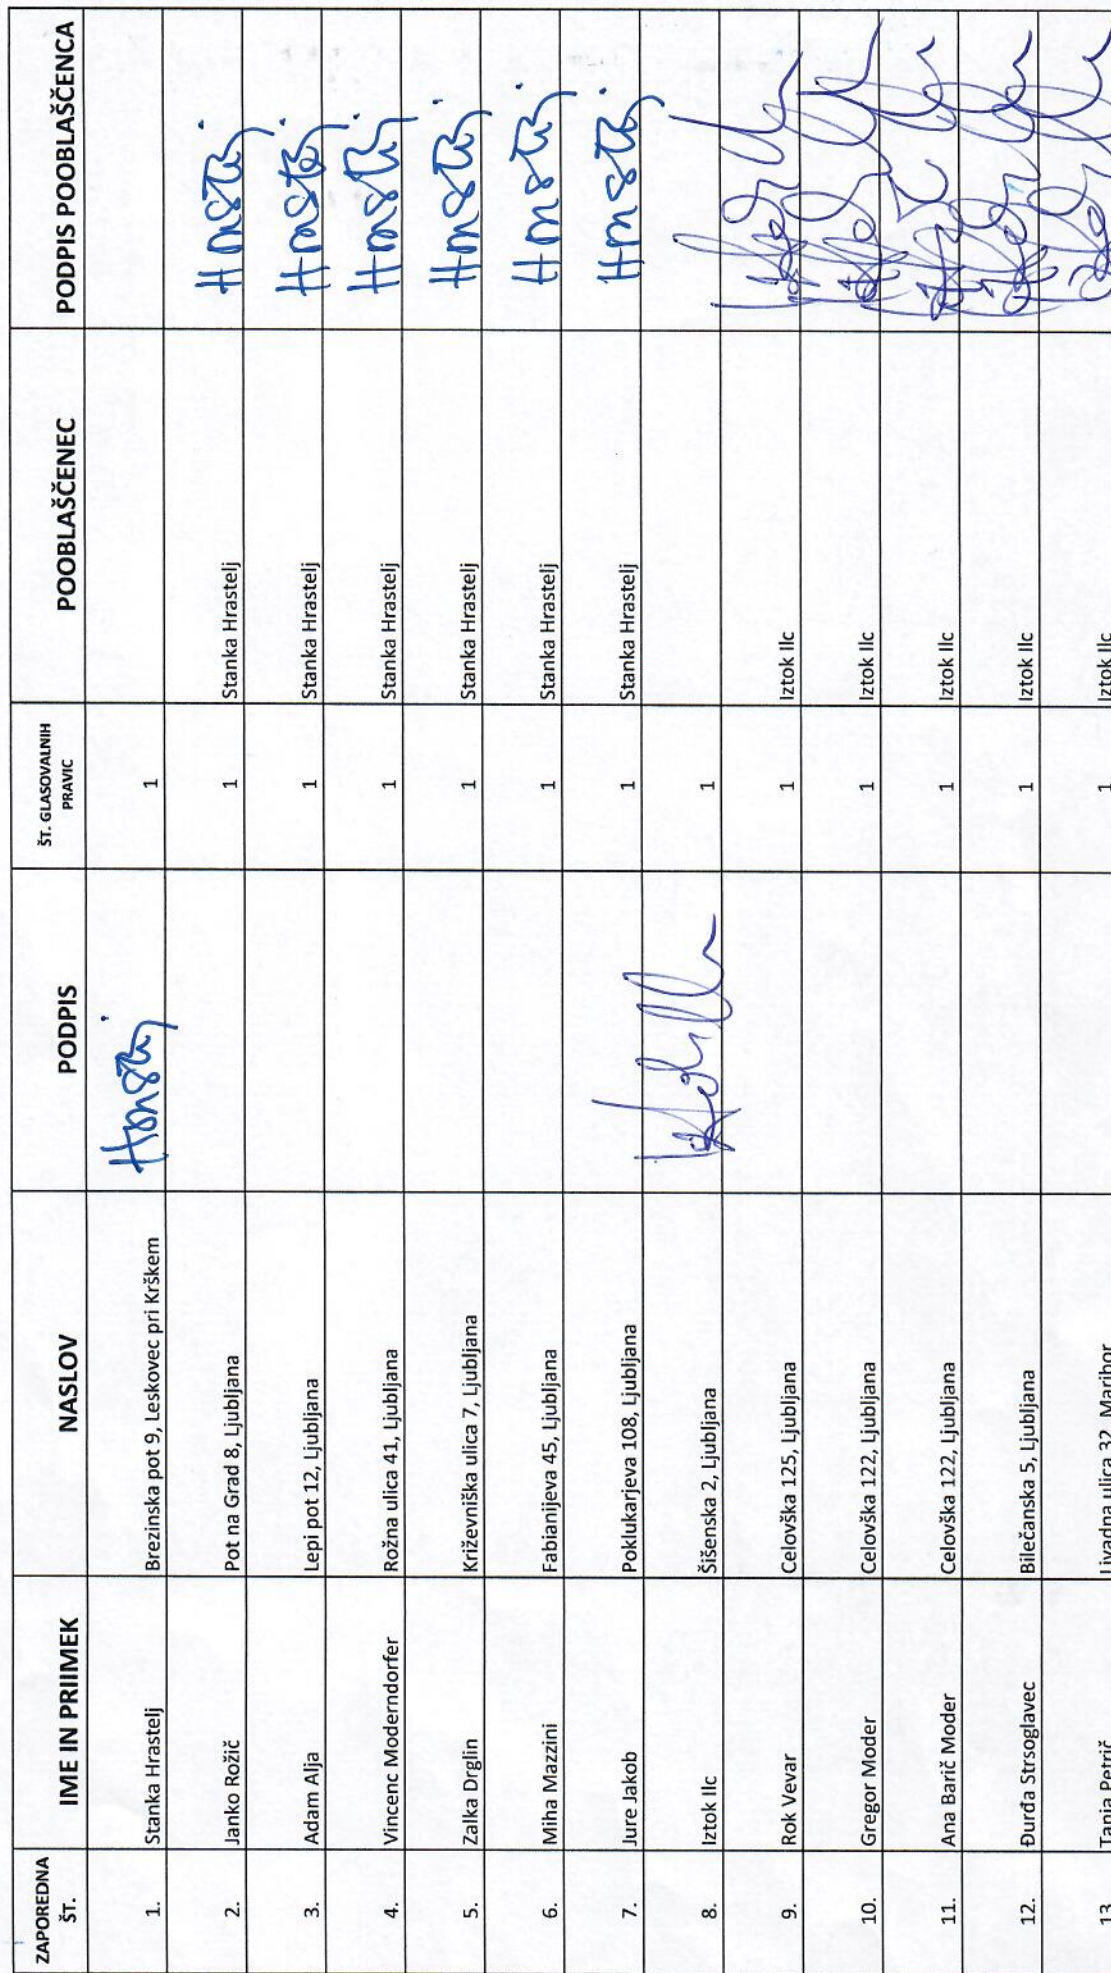 ZAPOREDNA ŠT. IME IN PRIIMEK NASLOV PODPIS ŠT. GLASOVALNIH PRAVIC POOBLAŠČENEC PODPIS POOBLAŠČENCA
1. Stanka Hrastelj Brezinska pot 9, Leskovec pri Krškem 1
2. Janko Rožič Pot na Grad 8, Ljubljana 1 Stanka Hrastelj
3. Adam Alja Lepi pot 12, Ljubljana 1 Stanka Hrastelj
4. Vincenc Moderndorfer Rožna ulica 41, Ljubljana 1 Stanka Hrastelj
5. Zalka Drglin Križevniška ulica 7, Ljubljana 1 Stanka Hrastelj
6. Miha Mazzini Fabianijeva 45, Ljubljana 1 Stanka Hrastelj
7. Jure Jakob Poklukarjeva 108, Ljubljana 1 Stanka Hrastelj
8. Iztok Ilc Šišenska 2, Ljubljana 1
9. Rok Vevar Celovška 125, Ljubljana 1 Iztok Ilc
10. Gregor Moder Celovška 122, Ljubljana 1 Iztok Ilc
11. Ana Barič Moder Celovška 122, Ljubljana 1 Iztok Ilc
12. Đurđa Strsoglavec Bilečanska 5, Ljubljana 1 Iztok Ilc
13. Tanja Petrič Livadna ulica 32, Maribor 1 Iztok Ilc